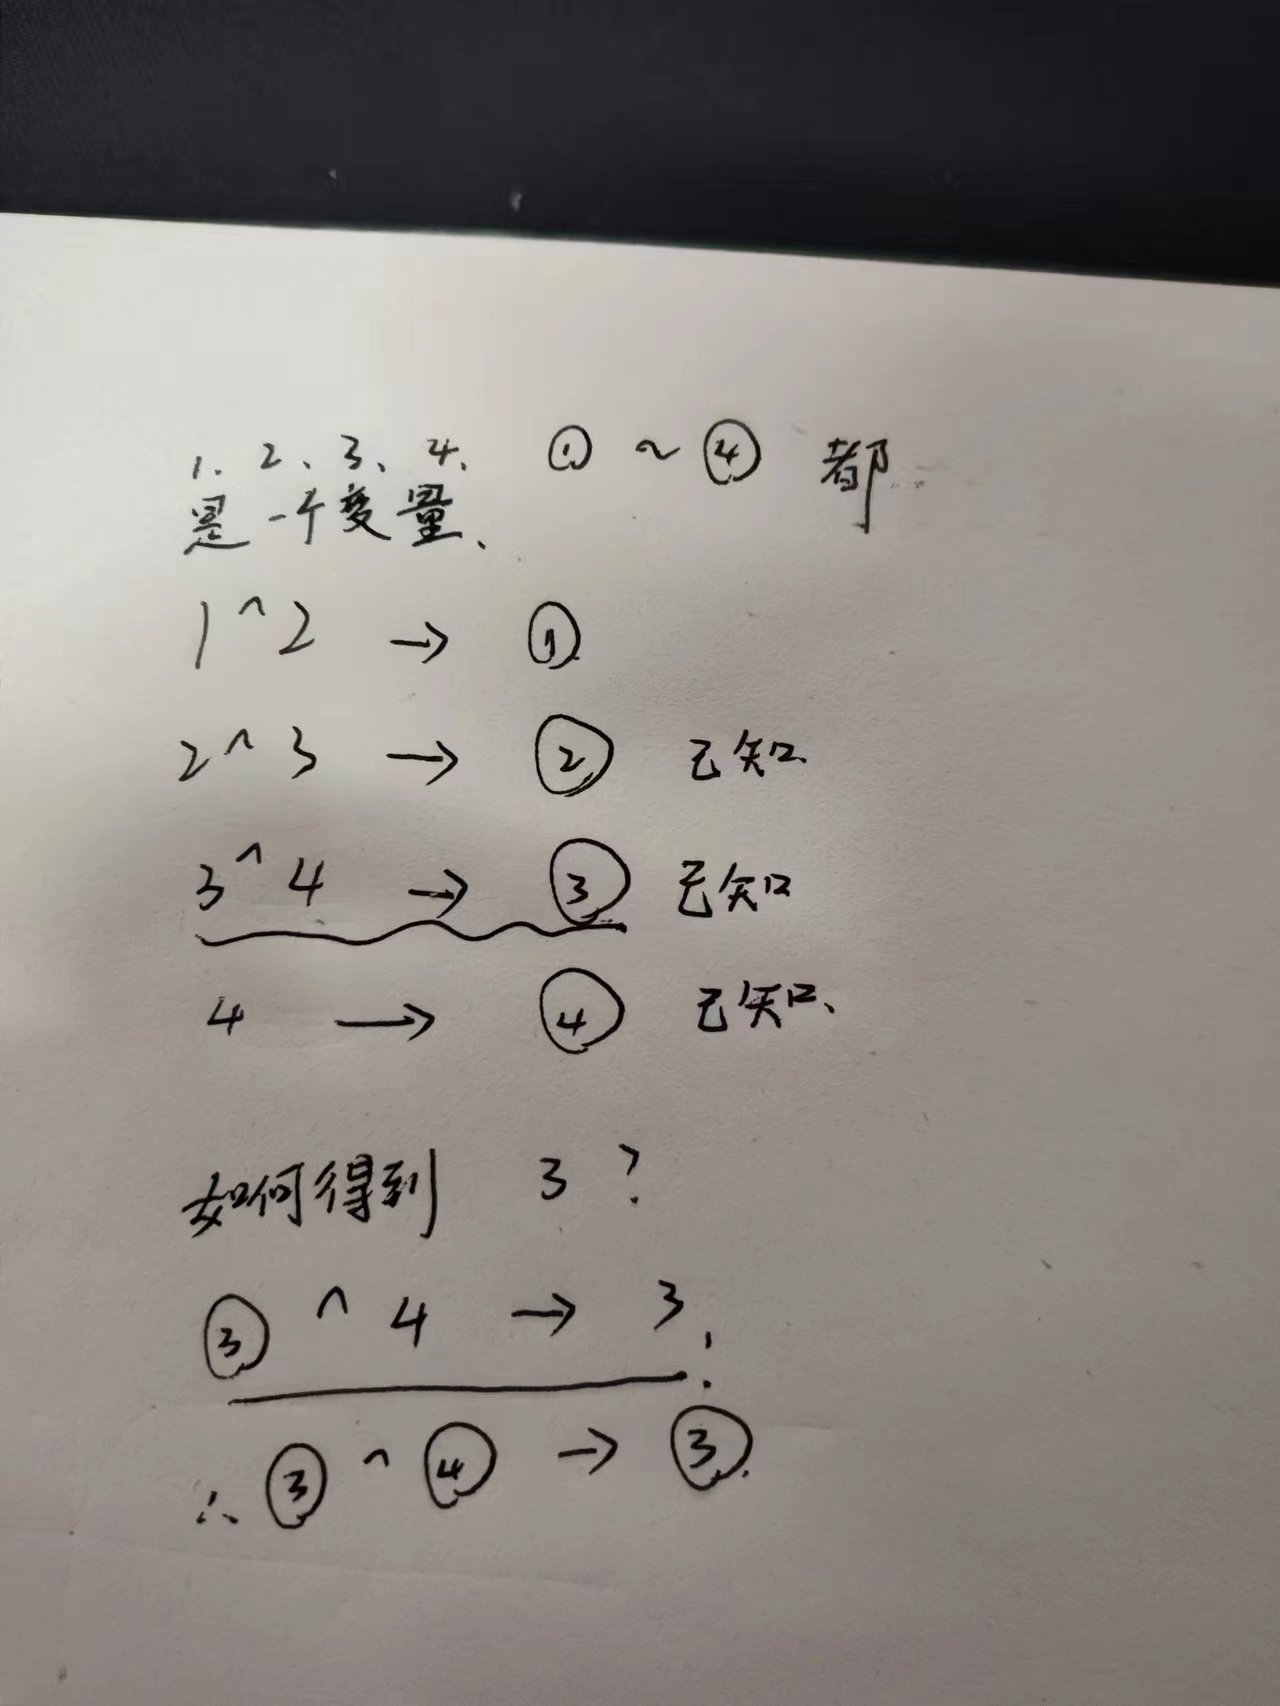 1、2、3、4、 ① ~ ④ 都
是一个变量、
1 ^ 2 → ①
2 ^ 3 → ② 已知
3 ^ 4 → ③ 已知
4 → ④ 已知、
如何得到 3 ?
③ ^ 4 → 3 ;
∴ ③ ^ ④ → ③.